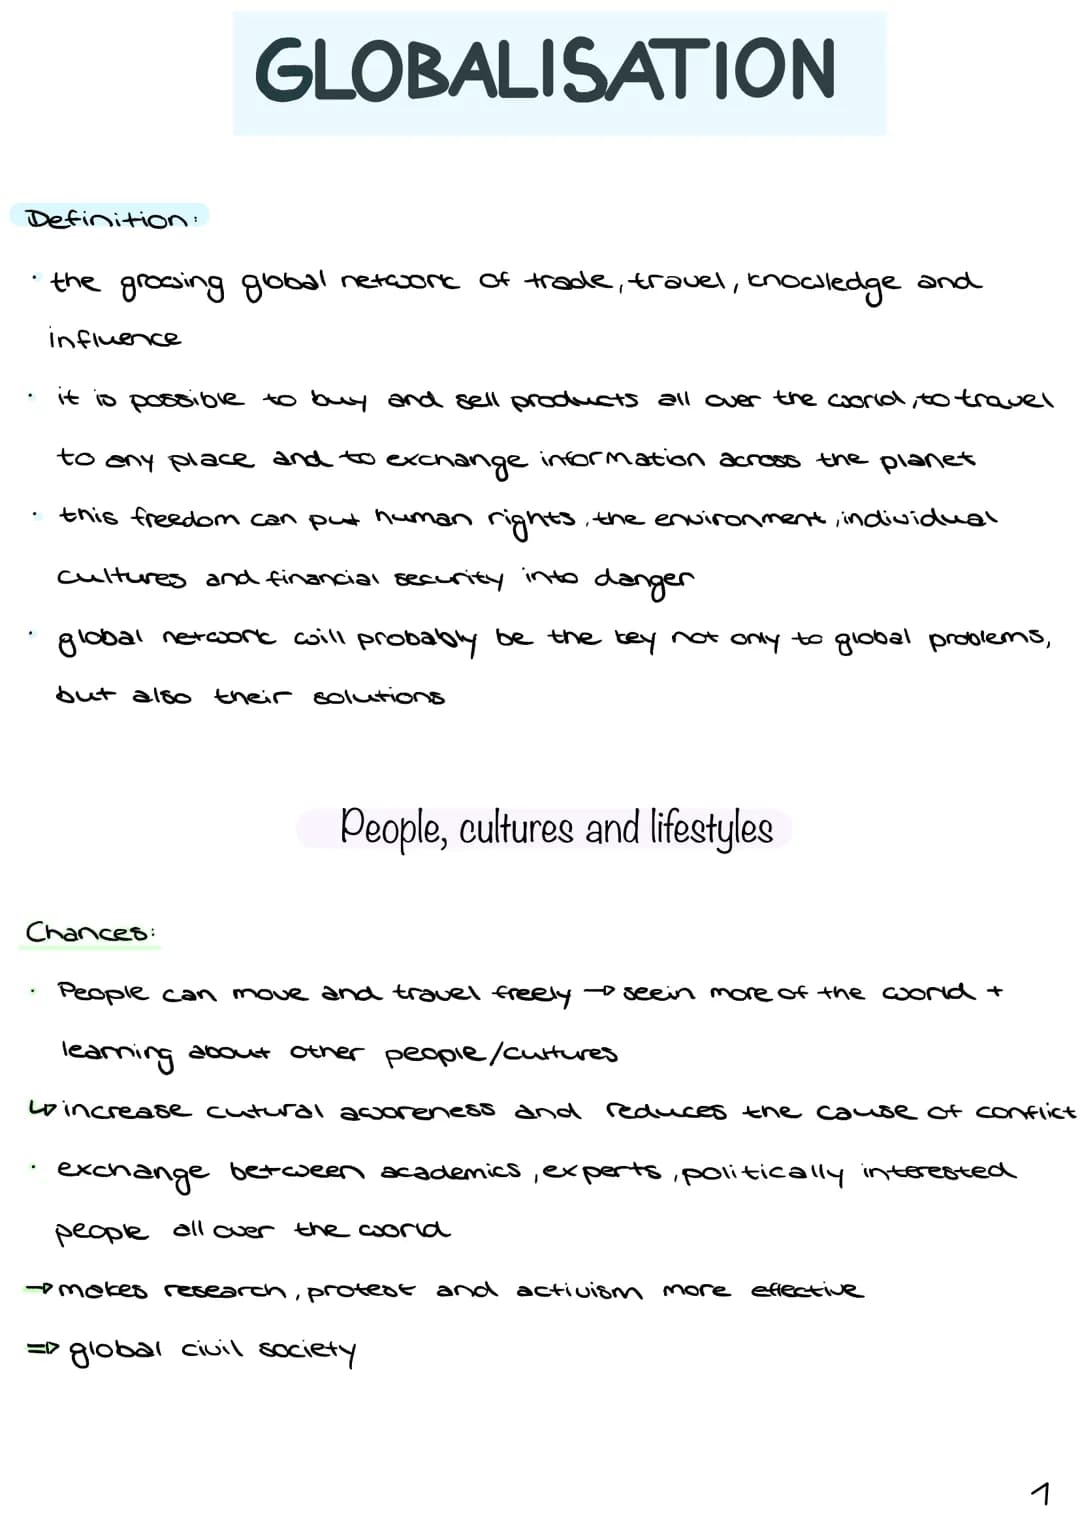 GLOBALISATION
Definition:
· the growing global network of trade, travel, knowledge and
influence
· it is possible to buy and sell products all over the world, to travel
to any place and to exchange information across the planet
· this freedom can put human rights, the environment, individual
cultures and financial security into danger
· global network will probably be the key not only to global problems,
but also their solutions
People, cultures and lifestyles
Chances:
· People can move and travel freely → seein more of the world +
learning about other people/cultures
↳ increase cutural awareness and reduces the cause of conflict
· exchange between academics, experts, politically interested
people all over the world
→ makes research, protest and activism more effective
⇒ global civil society
1